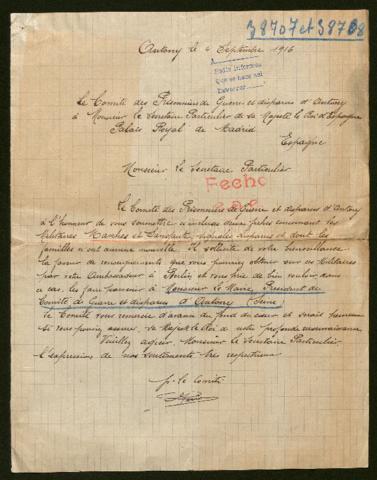 38707 et 38708
Antony le 6 Septembre 1916
Le Comité des Prisonniers de Guerre et disparus d'Antony
à Monsieur le Secrétaire Particulier de Sa Majesté le Roi d'Espagne
Palais Royal de Madrid
Espagne
Monsieur Le Secrétaire Particulier
Fecho
Le Comité des Prisonniers de Guerre et disparus d'Antony
a l'honneur de vous soumettre ci-incluses deux fiches concernant les
Militaires Marches et disparus et dont les
familles n'ont aucune nouvelle. Il sollicite de votre bienveillance
la faveur de renseignements que vous pourriez obtenir sur ces Militaires
par votre Ambassadeur à Berlin et vous prie de bien vouloir dans
ce cas, les faire parvenir à Monsieur Le Maire, Président du
Comité de Guerre et disparus d'Antony Seine
Le Comité vous remercie d'avance du fond du cœur et serait heureux
si vous pouviez assurer Sa Majesté le Roi de notre profonde reconnaissance
Veuillez agréer, Monsieur le Secrétaire Particulier
l'expression de nos sentiments très respectueux
p. le Comité